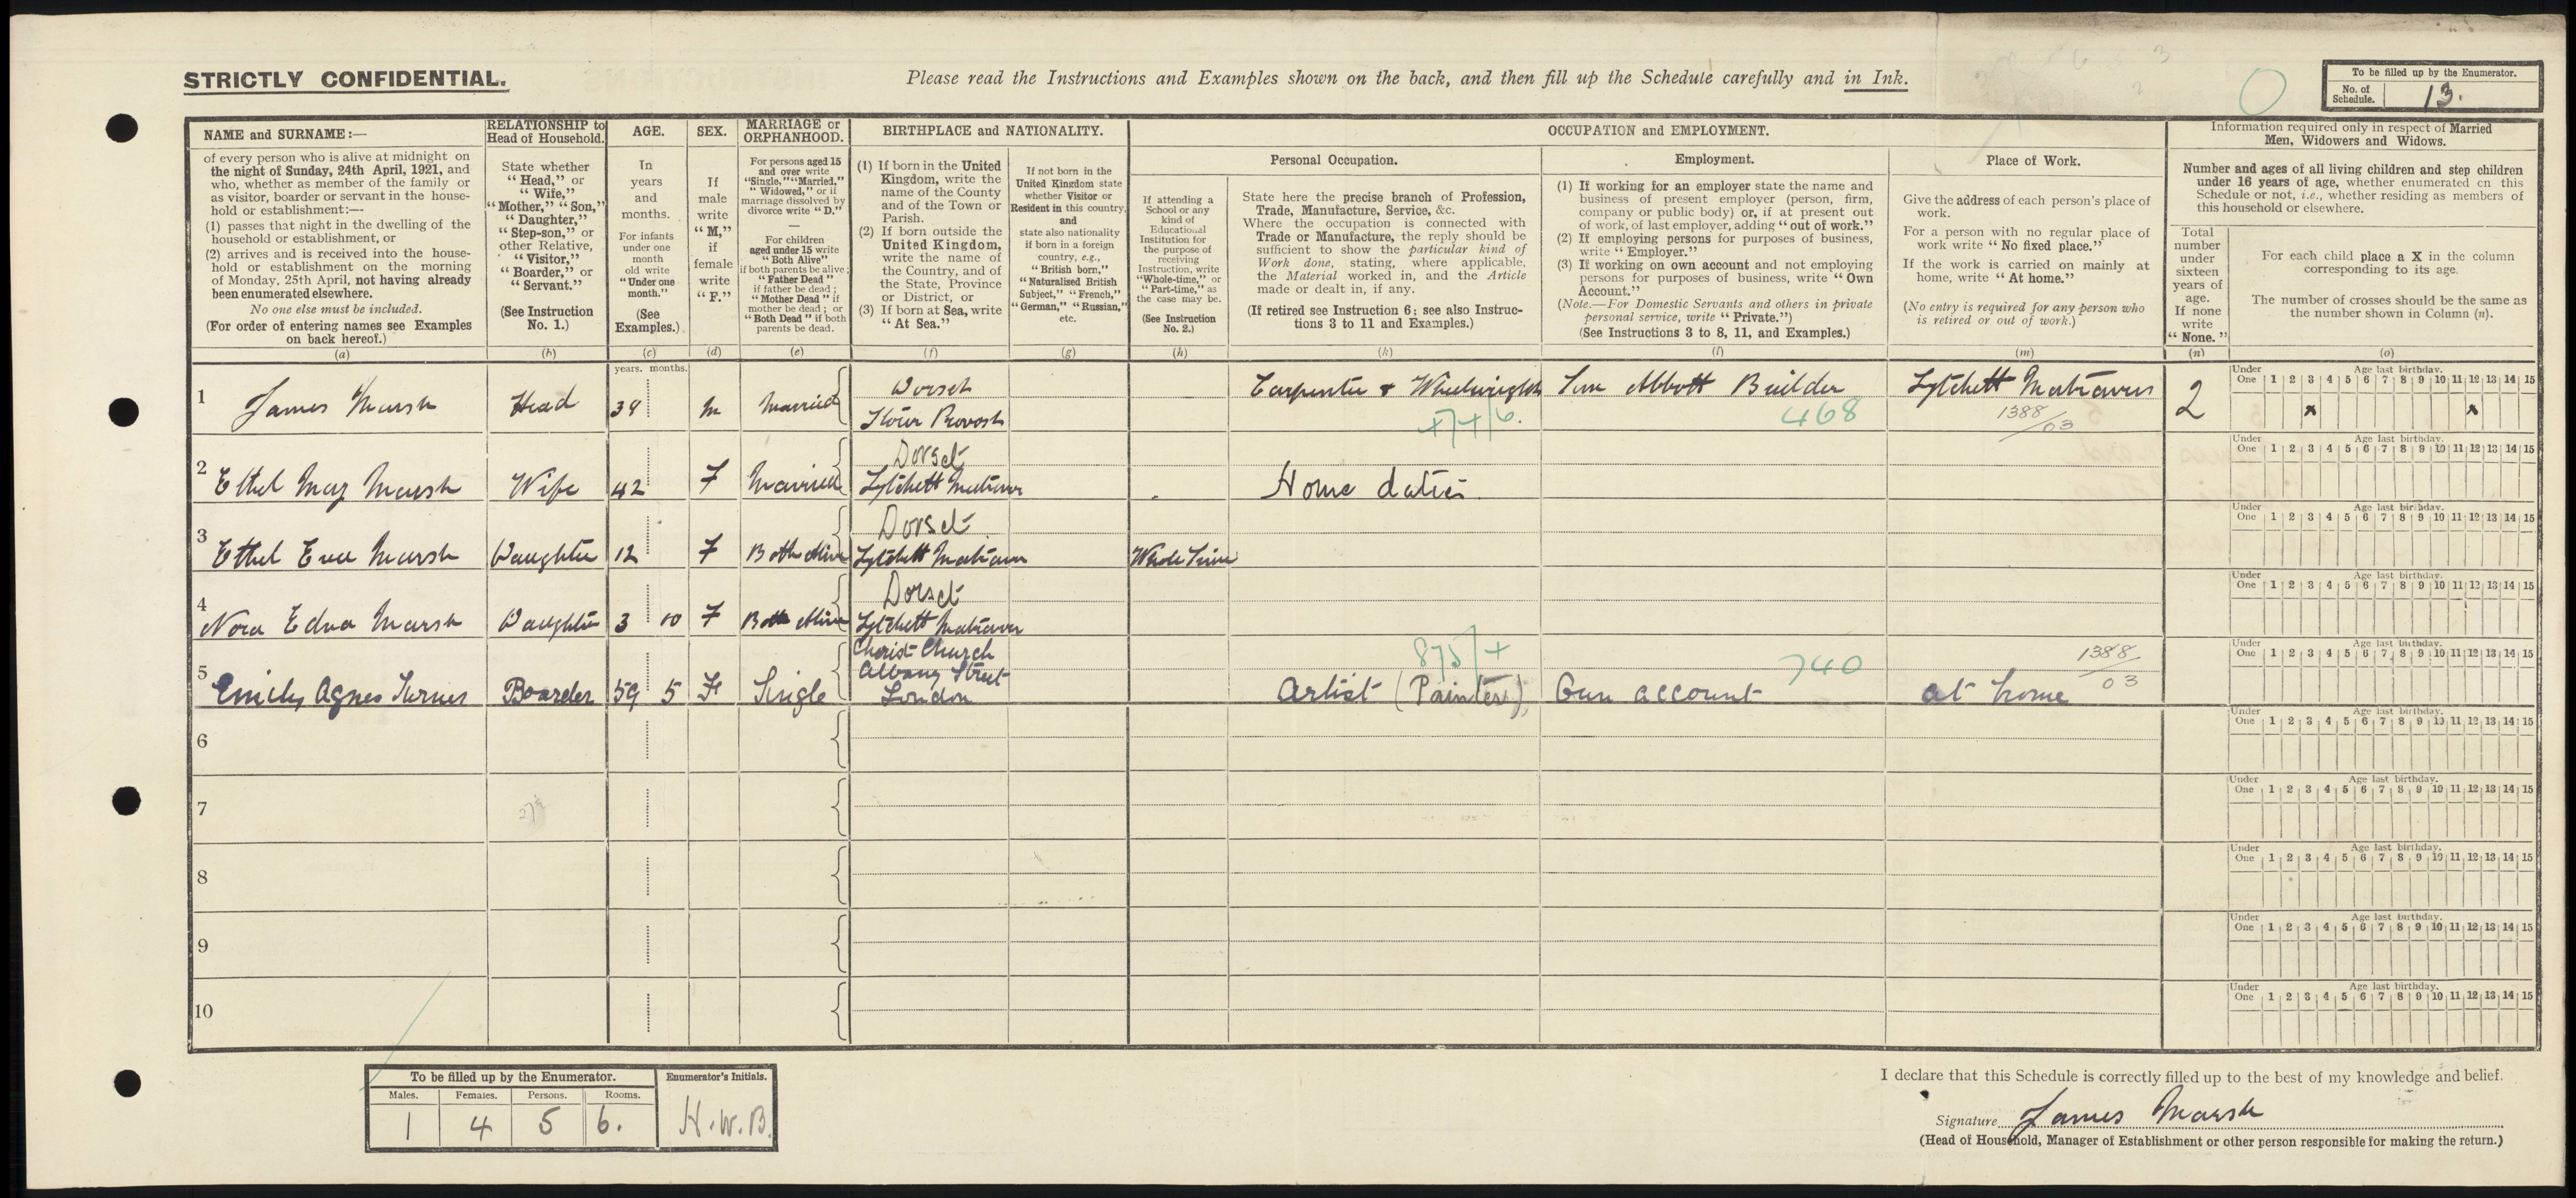 STRICTLY CONFIDENTIAL.
Please read the Instructions and Examples shown on the back, and then fill up the Schedule carefully and in Ink.
To be filled up by the Enumerator.
No. of Schedule. 13.
NAME and SURNAME :—
of every person who is alive at midnight on
the night of Sunday, 24th April, 1921, and
who, whether as member of the family or
as visitor, boarder or servant in the house-
hold or establishment:—
(1) passes that night in the dwelling of the
household or establishment, or
(2) arrives and is received into the house-
hold or establishment on the morning
of Monday, 25th April, not having already
been enumerated elsewhere.
No one else must be included.
(For order of entering names see Examples
on back hereof.)
(a)
RELATIONSHIP to
Head of Household.
State whether
“ Head,” or
“ Wife,”
“ Mother,” “ Son,”
“ Daughter,”
“ Step-son,” or
other Relative,
“ Visitor,”
“ Boarder,” or
“ Servant.”
(See Instruction
No. 1.)
(b)
AGE.
In
years
and
months.
For infants
under one
month
old write
“Under one
month.”
(See
Examples.)
(c)
SEX.
If
male
write
“ M,”
if
female
write
“ F.”
(d)
MARRIAGE or
ORPHANHOOD.
For persons aged 15
and over write
“Single,” “Married,”
“ Widowed,” or if
marriage dissolved by
divorce write “ D.”
—
For children
aged under 15 write
“ Both Alive”
if both parents be alive ;
“ Father Dead ”
if father be dead ;
“ Mother Dead ” if
mother be dead ; or
“ Both Dead ” if both
parents be dead.
(e)
BIRTHPLACE and NATIONALITY.
(1) If born in the United
Kingdom, write the
name of the County
and of the Town or
Parish.
(2) If born outside the
United Kingdom,
write the name of
the Country, and of
the State, Province
or District, or
(3) If born at Sea, write
“ At Sea.”
(f)
If not born in the
United Kingdom state
whether Visitor or
Resident in this country,
and
state also nationality
if born in a foreign
country, e.g.,
“ British born,”
“ Naturalised British
Subject,” “ French,”
“ German,” “ Russian,”
etc.
(g)
OCCUPATION and EMPLOYMENT.
If attending a
School or any
kind of
Educational
Institution for
the purpose of
receiving
Instruction, write
“Whole-time,” or
“ Part-time,” as
the case may be.
(See Instruction
No. 2.)
(h)
Personal Occupation.
State here the precise branch of Profession,
Trade, Manufacture, Service, &c.
Where the occupation is connected with
Trade or Manufacture, the reply should be
sufficient to show the particular kind of
Work done, stating, where applicable,
the Material worked in, and the Article
made or dealt in, if any.
(If retired see Instruction 6; see also Instruc-
tions 3 to 11 and Examples.)
(k)
Employment.
(1) If working for an employer state the name and
business of present employer (person, firm,
company or public body) or, if at present out
of work, of last employer, adding “ out of work.”
(2) If employing persons for purposes of business,
write “ Employer.”
(3) If working on own account and not employing
persons for purposes of business, write “ Own
Account.”
(Note.—For Domestic Servants and others in private
personal service, write “ Private.”)
(See Instructions 3 to 8, 11, and Examples.)
(l)
Place of Work.
Give the address of each person's place of
work.
For a person with no regular place of
work write “ No fixed place.”
If the work is carried on mainly at
home, write “ At home.”
(No entry is required for any person who
is retired or out of work.)
(m)
Information required only in respect of Married
Men, Widowers and Widows.
Number and ages of all living children and step children
under 16 years of age, whether enumerated on this
Schedule or not, i.e., whether residing as members of
this household or elsewhere.
Total
number
under
sixteen
years of
age.
If none
write
“ None. ”
(n)
For each child place a X in the column
corresponding to its age.
The number of crosses should be the same as
the number shown in Column (n).
(o)
years. months.
1 James Marsh Head 39 M Married Dorset Stour Provost Carpenter & Wheelwright Abbott Builder Lytchett Matravers 2 x x
468 1388/03
Under One Age last birthday. 1 2 3 4 5 6 7 8 9 10 11 12 13 14 15
2 Ethel May Marsh Wife 42 F Married Dorset Lytchett Matravers Home duties
Under One Age last birthday. 1 2 3 4 5 6 7 8 9 10 11 12 13 14 15
3 Ethel Eva Marsh Daughter 12 F Both Alive Dorset Lytchett Matravers Whole Time
Under One Age last birthday. 1 2 3 4 5 6 7 8 9 10 11 12 13 14 15
4 Nora Edna Marsh Daughter 3 10 F Both Alive Dorset Lytchett Matravers
Under One Age last birthday. 1 2 3 4 5 6 7 8 9 10 11 12 13 14 15
5 Emily Agnes Turner Boarder 59 5 F Single Christ Church Albany Street London Artist (Painter) Own account at home
875/+ 740 1388/03
Under One Age last birthday. 1 2 3 4 5 6 7 8 9 10 11 12 13 14 15
6
Under One Age last birthday. 1 2 3 4 5 6 7 8 9 10 11 12 13 14 15
7
Under One Age last birthday. 1 2 3 4 5 6 7 8 9 10 11 12 13 14 15
8
Under One Age last birthday. 1 2 3 4 5 6 7 8 9 10 11 12 13 14 15
9
Under One Age last birthday. 1 2 3 4 5 6 7 8 9 10 11 12 13 14 15
10
Under One Age last birthday. 1 2 3 4 5 6 7 8 9 10 11 12 13 14 15
To be filled up by the Enumerator.
Males. Females. Persons. Rooms.
1 4 5 6.
Enumerator's Initials.
H.W.B.
I declare that this Schedule is correctly filled up to the best of my knowledge and belief.
Signature James Marsh
(Head of Household, Manager of Establishment or other person responsible for making the return.)